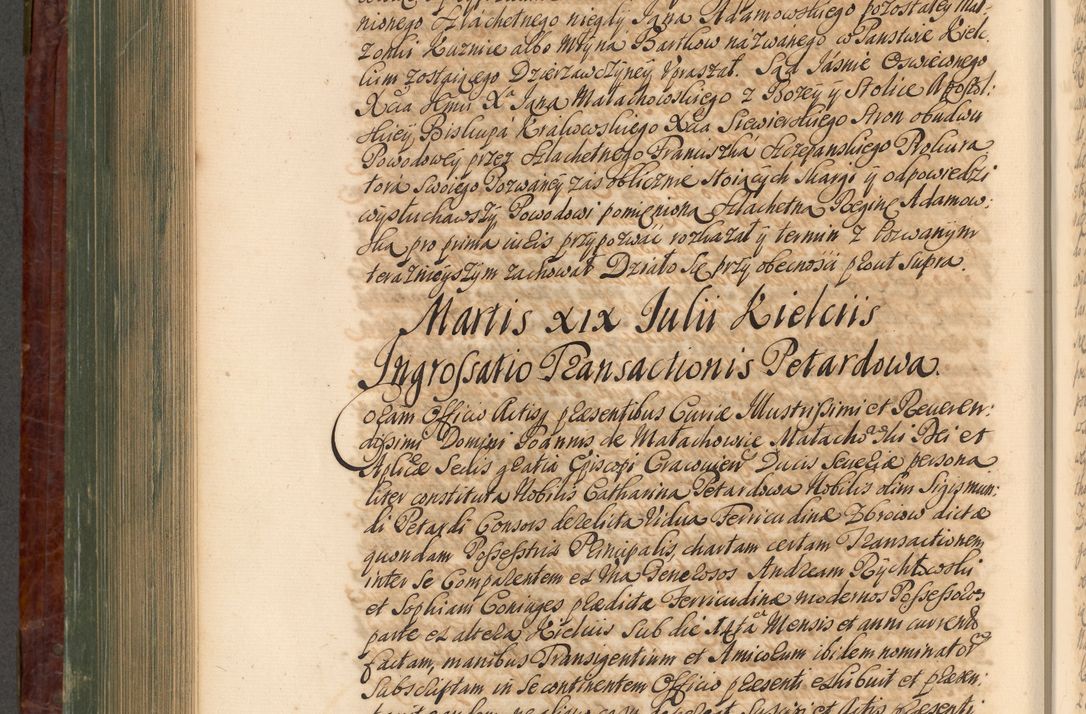 nionego Szlachetnego niegdy Jana Adamowskiego pozostałey Mał-
żonki Kuznice albo Młyna Bartkow nazwanego w Panstwie Kielc:
kim zostaiącego Dzierzawczyney Vpraszał. Sąd Jasnie Oswieconego
Xcia Jgmći Xa Jana Małachowskiego z Bozey y Stolice Apostol:
skiey Biskupa Krakowskiego Xcia Siewierskiego Stron obudwu
Powodowey przez Szlachetnego Franciszka Szczepanskiego Prokura
tora swoiego Pozwaney zas oblicznie stoiących skargi y odpowiedzi
wysłuchawszy Powodowi pomieniona Szlachetna Reginę Adamow:
ska pro prima iuris przypozwać rozkazał y termin z Pozwanym
teraznieyszym zachował Działo się przy obecnosci prout supra.
Martis XIX Julii Kielciis
Ingrossatio Transactionis Petardowa.
Coram Officio Actisq præsentibus Curiæ Illustrissimi et Reveren:
dissimi Domini Joannis de Małachowice Małachowski Dei et
Aplicæ Sedis gratia Episcopi Cracovien Ducis Severiæ persona
liter constituta Nobilis Catharina Petardowa Nobilis olim Sigismun:
di Petardi Consors derelicta Vidua Ferricudinæ Zbrocow dictæ
quondam Possesstrix Principalis, chartam certam Transactionem
inter se Comparentem ex Una Generosos Andream Rychtowski
et Sophiam Coniuges prædictæ Ferricudinæ modernos Possessores
parte ex altera Kielciis sub die 14ta Mensis et anni currentis
factam, manibus Transigentium et Amicorum ibidem nominatorum
Subscriptam in se continentem Officio præsenti exhibuit et præsen: